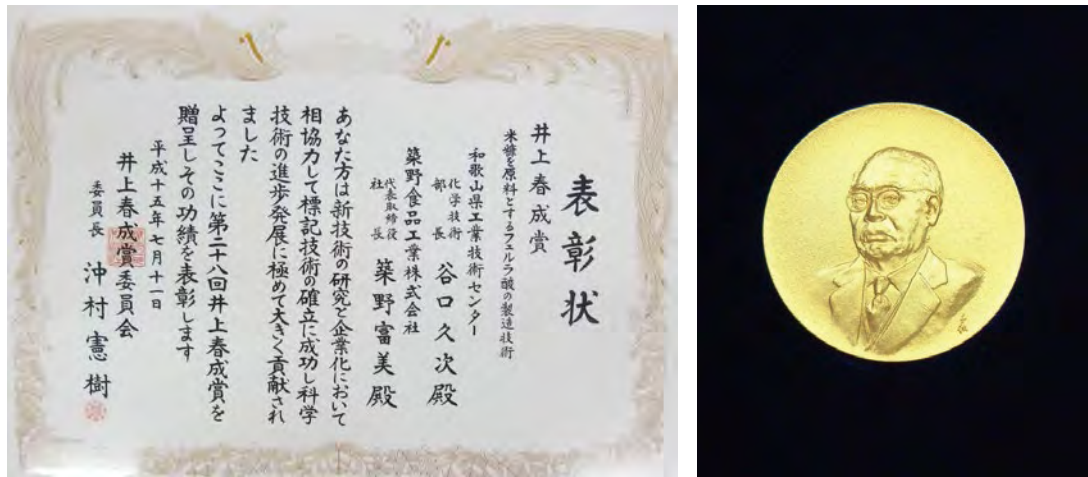 表彰状
井上春成賞
米糠を原料とするフェルラ酸の製造技術
和歌山県工業技術センター
化学技術
部長 谷口久次殿
築野食品工業株式会社
代表取締役
社長 築野富美殿
あなた方は新技術の研究と企業化において
相協力して標記技術の確立に成功し科学
技術の進歩発展に極めて大きく貢献され
ました
よってここに第二十八回井上春成賞を
贈呈しその功績を表彰します
平成十五年七月十一日
井上春成賞委員会
委員長 沖村憲樹